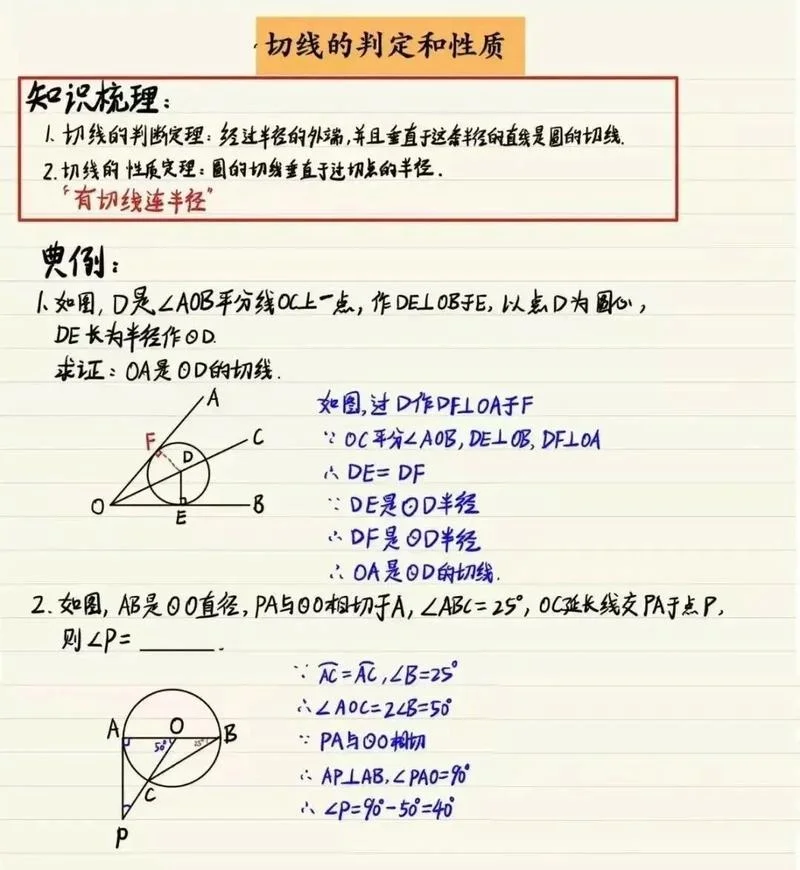 切线的判定和性质
知识梳理：
1. 切线的判断定理：经过半径的外端，并且垂直于这条半径的直线是圆的切线.
2. 切线的性质定理：圆的切线垂直于过切点的半径.
“有切线连半径”
典例：
1. 如图，D是∠AOB平分线OC上一点，作DE⊥OB于E，以点D为圆心，
DE长为半径作⊙D.
求证：OA是⊙D的切线.
A
F
D
C
O
E
B
如图，过D作DF⊥OA于F
∵ OC平分∠AOB，DE⊥OB，DF⊥OA
∴ DE=DF
∵ DE是⊙D半径
∴ DF是⊙D半径
∴ OA是⊙D的切线.
2. 如图，AB是⊙O直径，PA与⊙O相切于A，∠ABC=25°，OC延长线交PA于点P，
则∠P=______.
A
O
B
50°
25°
C
P
∵ A͡C=A͡C，∠B=25°
∴ ∠AOC=2∠B=50°
∵ PA与⊙O相切
∴ AP⊥AB，∠PAO=90°
∴ ∠P=90°-50°=40°